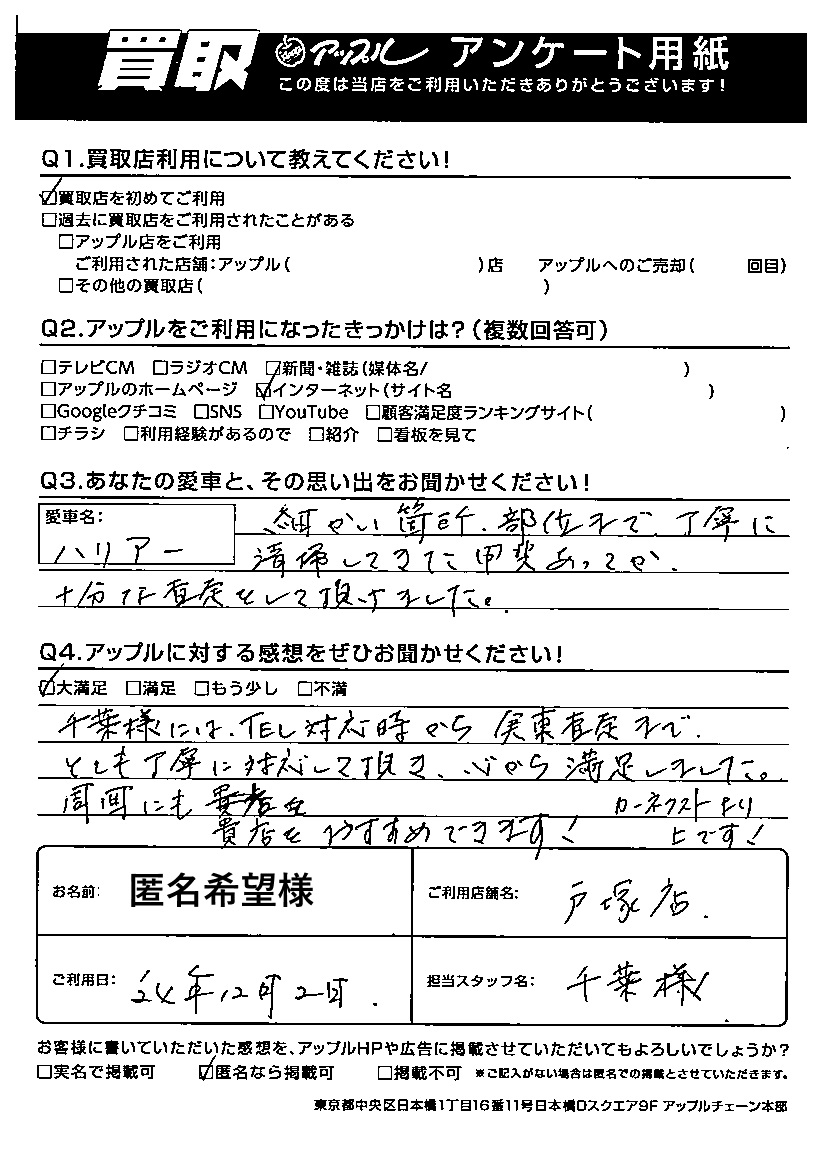 買取 アップル アンケート用紙
この度は当店をご利用いただきありがとうございます!
Q1.買取店利用について教えてください!
☑買取店を初めてご利用
□過去に買取店をご利用されたことがある
□アップル店をご利用
ご利用された店舗:アップル( )店 アップルへのご売却( 回目)
□その他の買取店( )
Q2.アップルをご利用になったきっかけは?(複数回答可)
□テレビCM □ラジオCM ☑新聞・雑誌(媒体名/ )
□アップルのホームページ ☑インターネット(サイト名 )
□Googleクチコミ □SNS □YouTube □顧客満足度ランキングサイト( )
□チラシ □利用経験があるので □紹介 □看板を見て
Q3.あなたの愛車と、その思い出をお聞かせください!
愛車名:
ハリアー
細かい箇所、部位まで、丁寧に
清掃してきた甲斐あってか、
十分な査定をして頂けました。
Q4.アップルに対する感想をぜひお聞かせください!
☑大満足 □満足 □もう少し □不満
千葉様には、TEL対応時から実車査定まで、
とても丁寧に対応して頂き、心から満足しました。
周囲にも
貴店をおすすめできます!
ローネクストより
上です!
お名前: 匿名希望様 ご利用店舗名: 戸塚店.
ご利用日: '24年12月2日. 担当スタッフ名: 千葉様!
お客様に書いていただいた感想を、アップルHPや広告に掲載させていただいてもよろしいでしょうか?
□実名で掲載可 ☑匿名なら掲載可 □掲載不可 ※ご記入がない場合は匿名での掲載とさせていただきます。
東京都中央区日本橋1丁目16番11号日本橋Dスクエア9F アップルチェーン本部